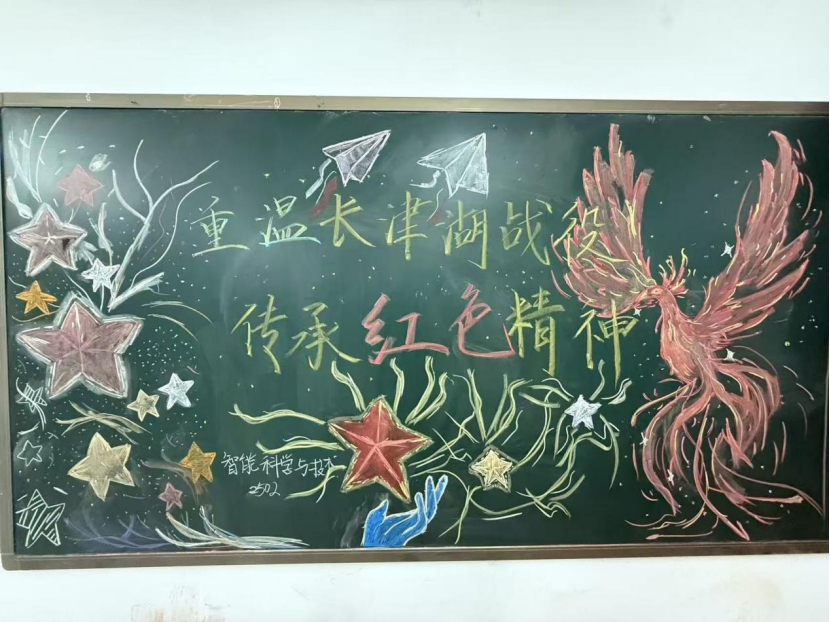 重温长津湖战役
传承红色精神
智能科学与技术
2502